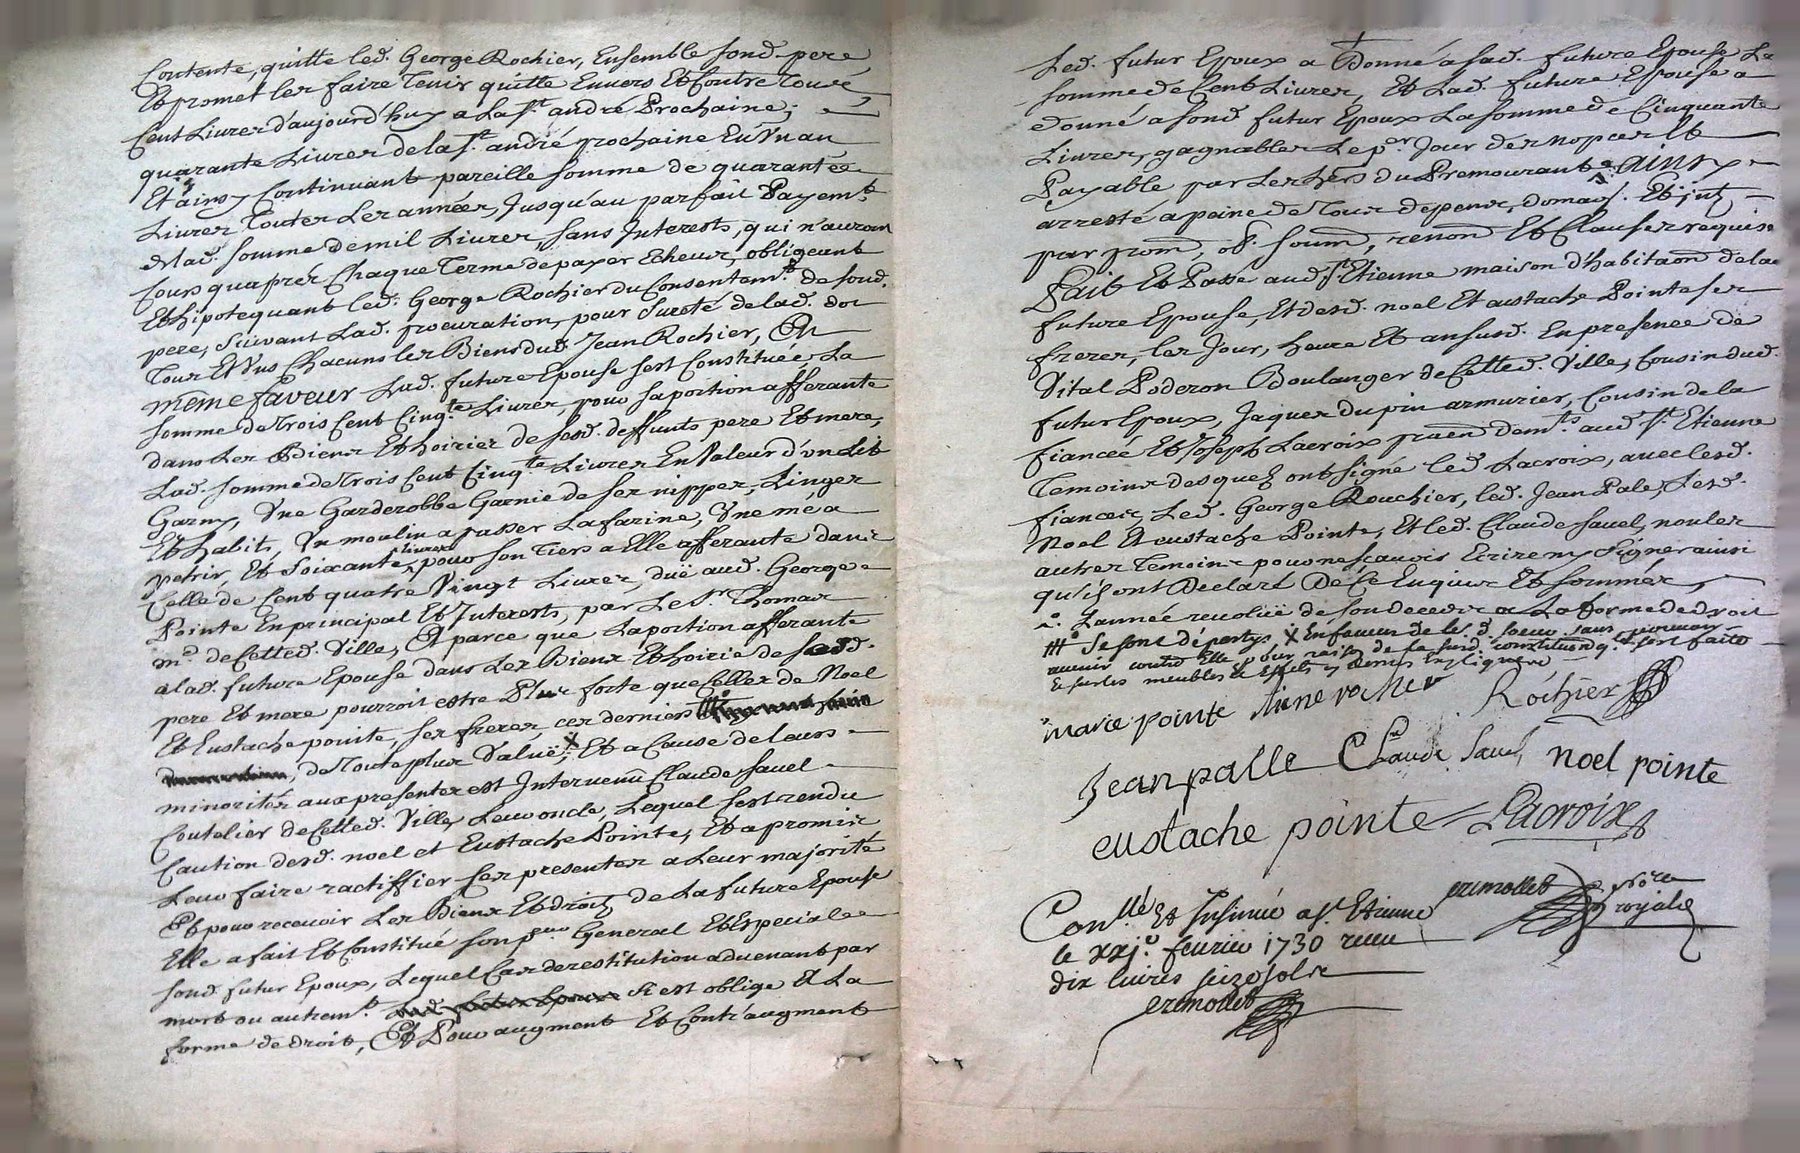 Contente, quitte led. George Rochier, Ensemble sond. pere
Et promet les faire Tenir quitte Envers Et Contre Tous
Cent Livres d'aujourd'huy a La St. andré Prochaine,
quarante Livres de la St. andré prochaine En Un an
Et ainsy Continuant pareille somme de quarante
Livres Toutes Les années, Jusqu'au parfait Payemt.
de lad. somme de mil Livres, sans Interests, qui n'auront
Cours qu'aprez Chaque Terme de payer Echeus, obligeant
Et hipotequant led. George Rochier du Consentemt. de sond.
pere, suivant Lad. procuration, pour sureté de lad. dot
Tous Et Uns Chacuns les Biens dud. Jean Rochier, En
même faveur Lad. future Epouse s'est Constituée La
somme de Trois Cent Cingte. Livres, pour sa portion afferante
dans Les Biens Et hoiries de sesd. deffunts pere Et mere,
Lad. somme de Trois Cent Cingte. Livres En Valeur d'un Lit
Garny, Une Garderobbe Garnie de ses nippes, Linges
Et habits, Un moulin a passer La farine, Une mé a
petrir, Et Soixante livres pour son Tiers a Elle afferante dans
Celle de Cent quatre Vingt Livres, duë aud. George
Pointe En principal Et Interests, par Le Sr. Thomas
md. de Cette d. Ville, Et parce que La portion afferante
a lad. future Epouse dans Les Biens Et hoirie de sesd.
pere Et mere pourroit estre Plus forte que Celles de Noel
Et Eustache pointe, ses freres, ces derniers
de Toute plus Value, X Et a Cause de Leurs
minorités aux presentes est Intervenu Claude Sauel
Coutelier de Cette d. Ville, Leur oncle, Lequel s'est rendu
Caution desd. noel et Eustache Pointe, Et a promis
Leur faire ractiffier Ces presentes a Leur majorité
Et pour recevoir Les Biens Et droits de La future Epouse
Elle a fait Et Constitué son pr. General Et Especial
sond. futur Epoux, Lequel Cas de restitution advenant par
mort ou autremt. s'i est obligé A La
forme de droit, Et Pour augment Et Contr'augment
Led. futur Epoux a Donné a sad. future Epouse La
somme de Cent Livres, Et Lad. future Epouse a
donné a sond. futur Epoux La somme de Cinquante
Livres, gagnables Le pr. Jour des nopces Et
Payable par Les hers du Premourant. ainsy
arresté a peine de Tous depens, domag. Et int.
par prom, ob. soum, renon Et Clauses requises
Fait Et Passé aud. St. Etienne maison d'habitaon de la
future Epouse, Et desd. noel Et Eustache Pointe ses
freres, les Jour, heure Et an susd. En presence de
Vital Poderon Boulanger de Cette d. Ville, Cousin dud.
futur Epoux, Jaques dupin armurier, Cousin de la
fiancée Et Joseph Lacroix praen demts. aud. St. Etienne
Temoins desquez ont signé led. Lacroix, avec lesd.
fiancés, Led. George Rouchier, led. Jean Pale, Lesd.
Noel Et eustache Pointe, Et led. Claude Sauel, non les
autres Temoins pour ne sçavoir Ecrire ny signer ainsi
qu'ils ont Declaré De Ce Enquis Et sommés,
L'année revoluë de son Decedz a La forme de droit
Se sont départys X En faveur de led. soeur sans pouvoir
revenir contre Elle pour raison de la susd. constitution q. s'est faite
marie pointe Rochier
Jean palle Claude Sauel noel pointe
eustache pointe Lacroix
Conllé Et Insinué a St. Etienne
le xxje. fevrier 1730 receu
dix livres seize sols
eremollet Nore
royal
eremollet